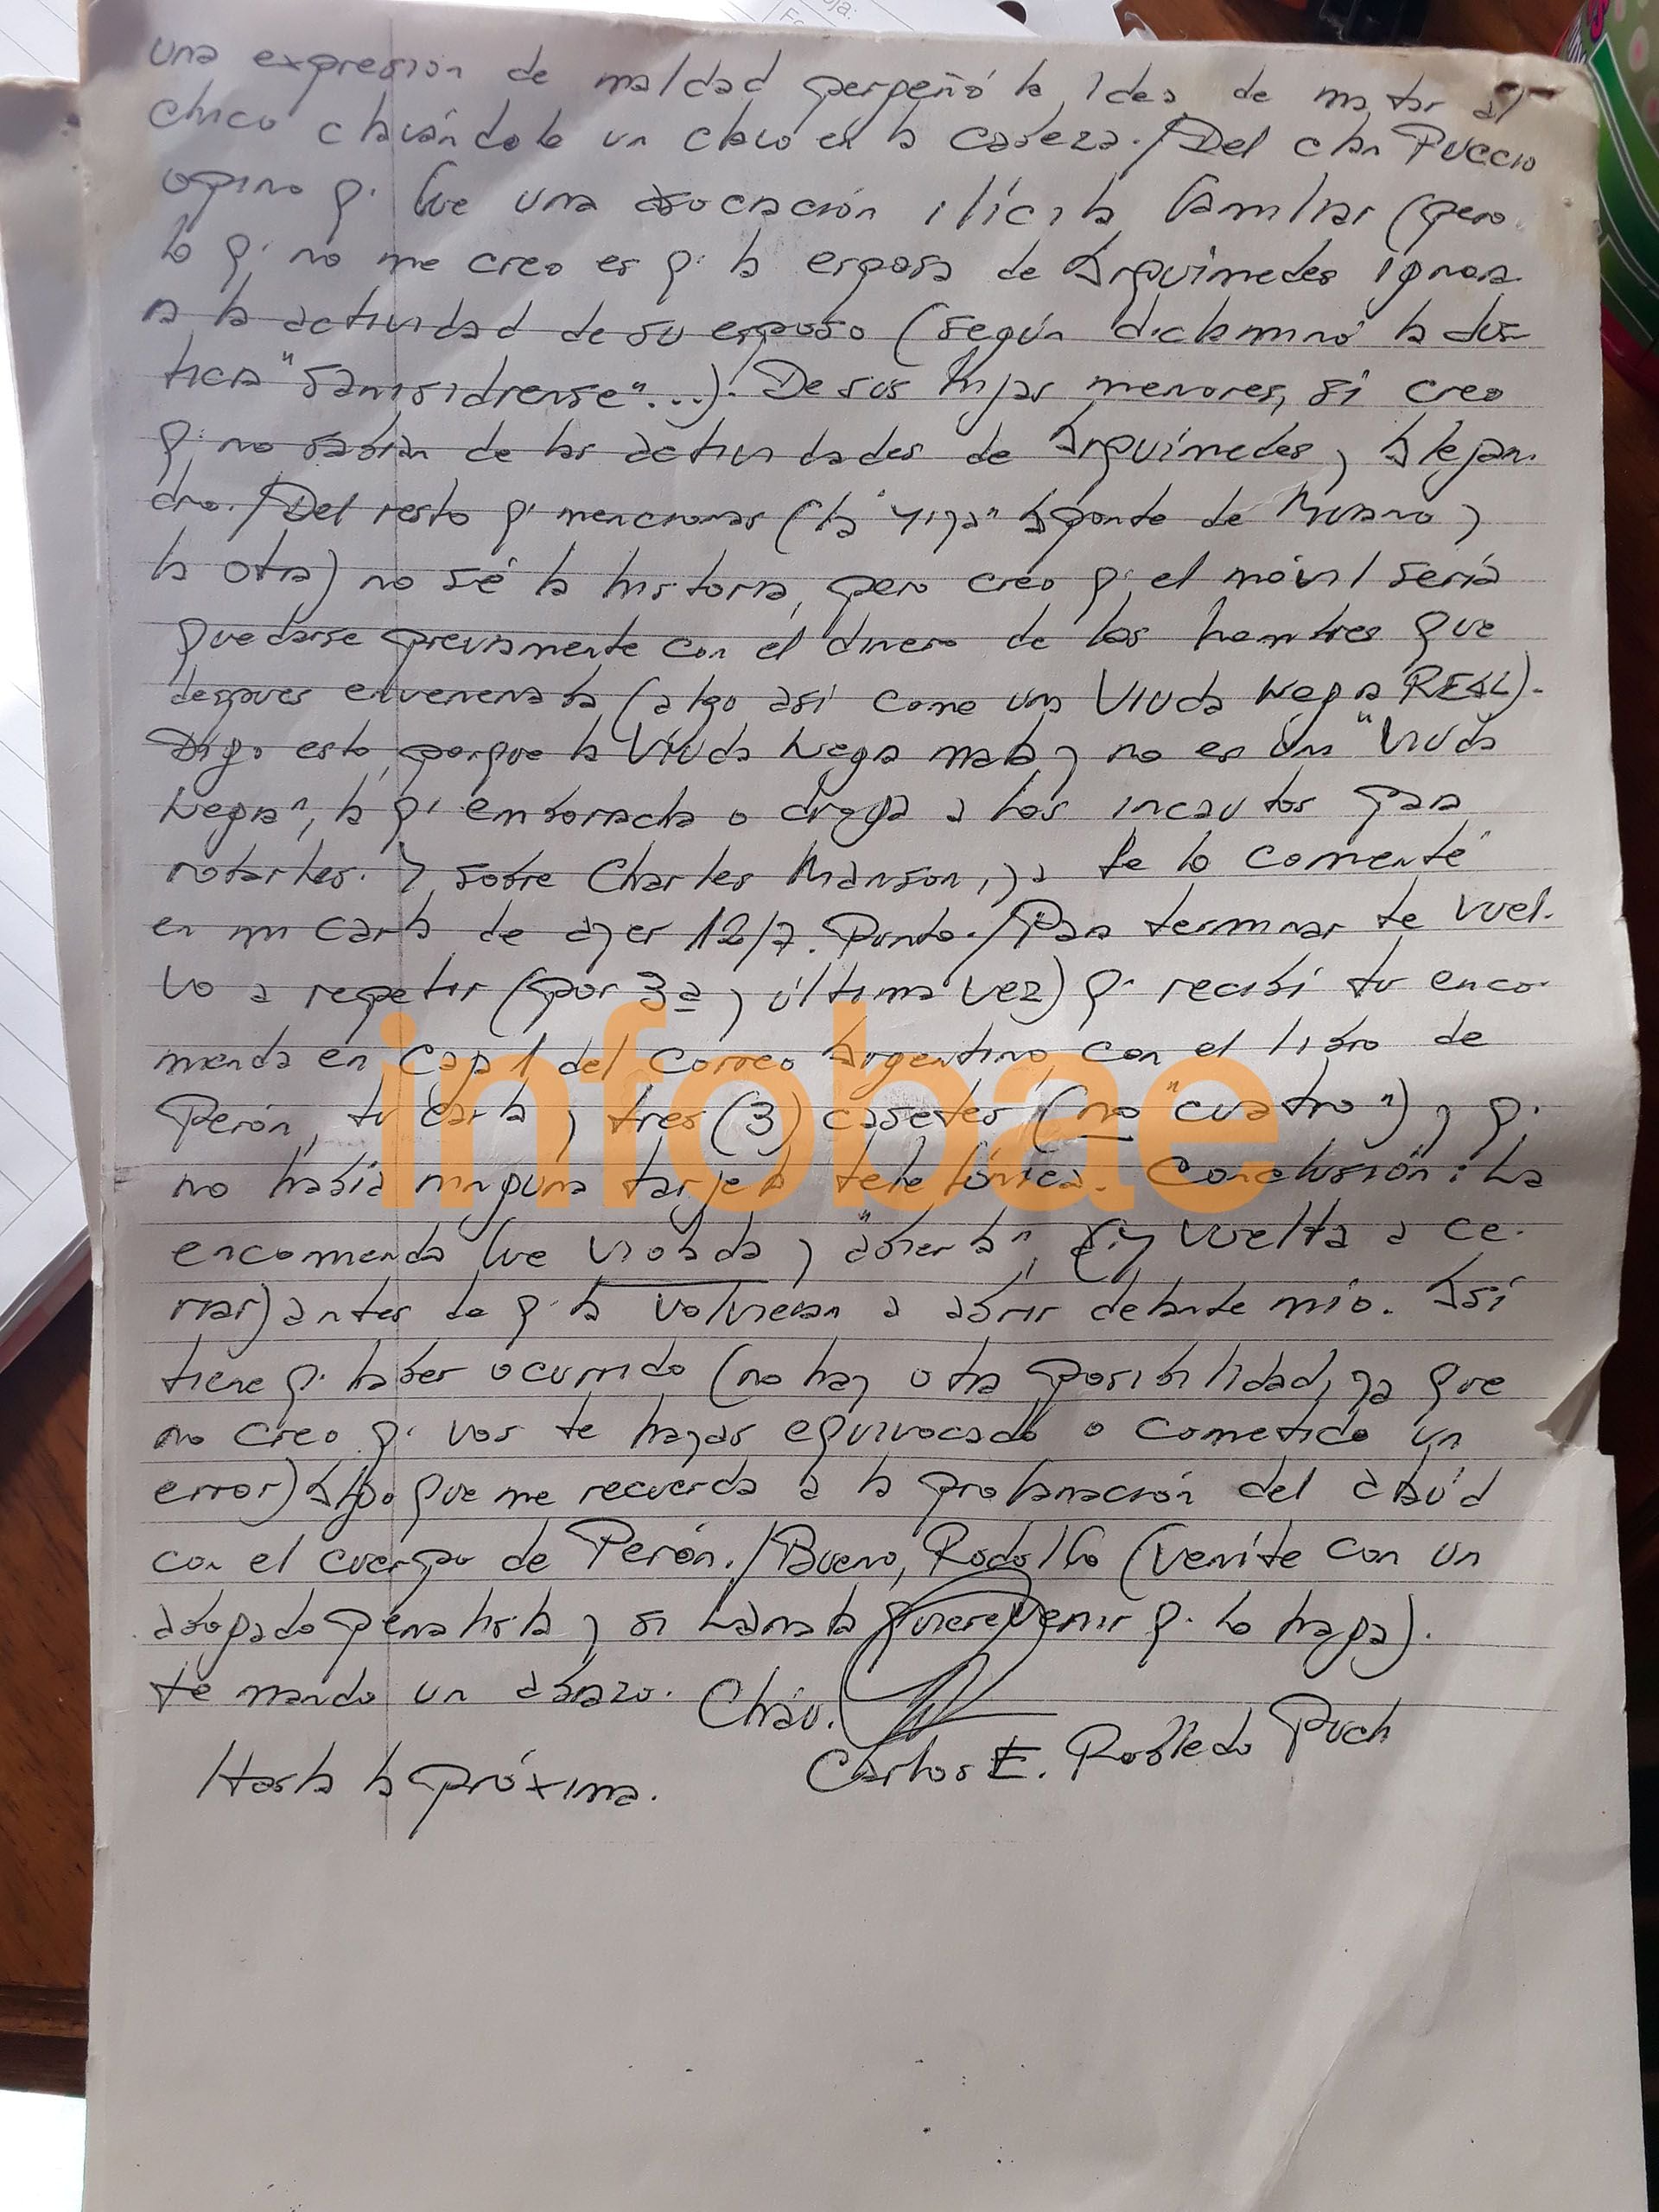 una expresión de maldad pergeñó la idea de matar al
chico clavándole un clavo en la cabeza. / Del clan Puccio
opino q' fue una asociación ilícita familiar (pero
lo q' no me creo es q' la esposa de Arquímedes ignora
ra la actividad de su esposo (según dictaminó la Jus-
ticia "sanisidrense"...). De sus hijas menores, sí creo
q' no sabían de las actividades de Arquímedes y Alejan-
dro. / Del resto q' mencionas (la "Yiya" Aponte de Murano y
la otra) no sé la historia, pero creo q' el móvil sería
quedarse previamente con el dinero de los hombres que
después envenenaba (algo así como una Viuda Negra REAL).
Digo esto, porque la Viuda Negra mata y no es una "Viuda
Negra", la q' emborracha o droga a los incautos para
robarles. Y sobre Charles Manson, ya te lo comenté
en mi carta de ayer 12/7. Punto. / Para terminar te vuel-
vo a repetir (por 3ª y última vez) q' recibí tu enco-
mienda en del Correo Argentino con el libro de
Perón, tu carta y tres (3) casetes (no "cuatro") y q'
no había ninguna tarjeta telefónica. Conclusión: La
encomienda fue violada y "abierta", vuelta a ce-
rrar) antes de q' la volvieran a abrir delante mío. Así
tiene q' haber ocurrido (no hay otra posibilidad, ya que
no creo q' vos te hayas equivocado o cometido un
error) Algo que me recuerda a la profanación del ataúd
con el cuerpo de Perón. / Bueno, Rodolfo (venite con un
abogado penalista y si quiere venir q' lo haga).
te mando un abrazo. Chau.
Carlos E. Robledo Puch
Hasta la próxima.
infobae